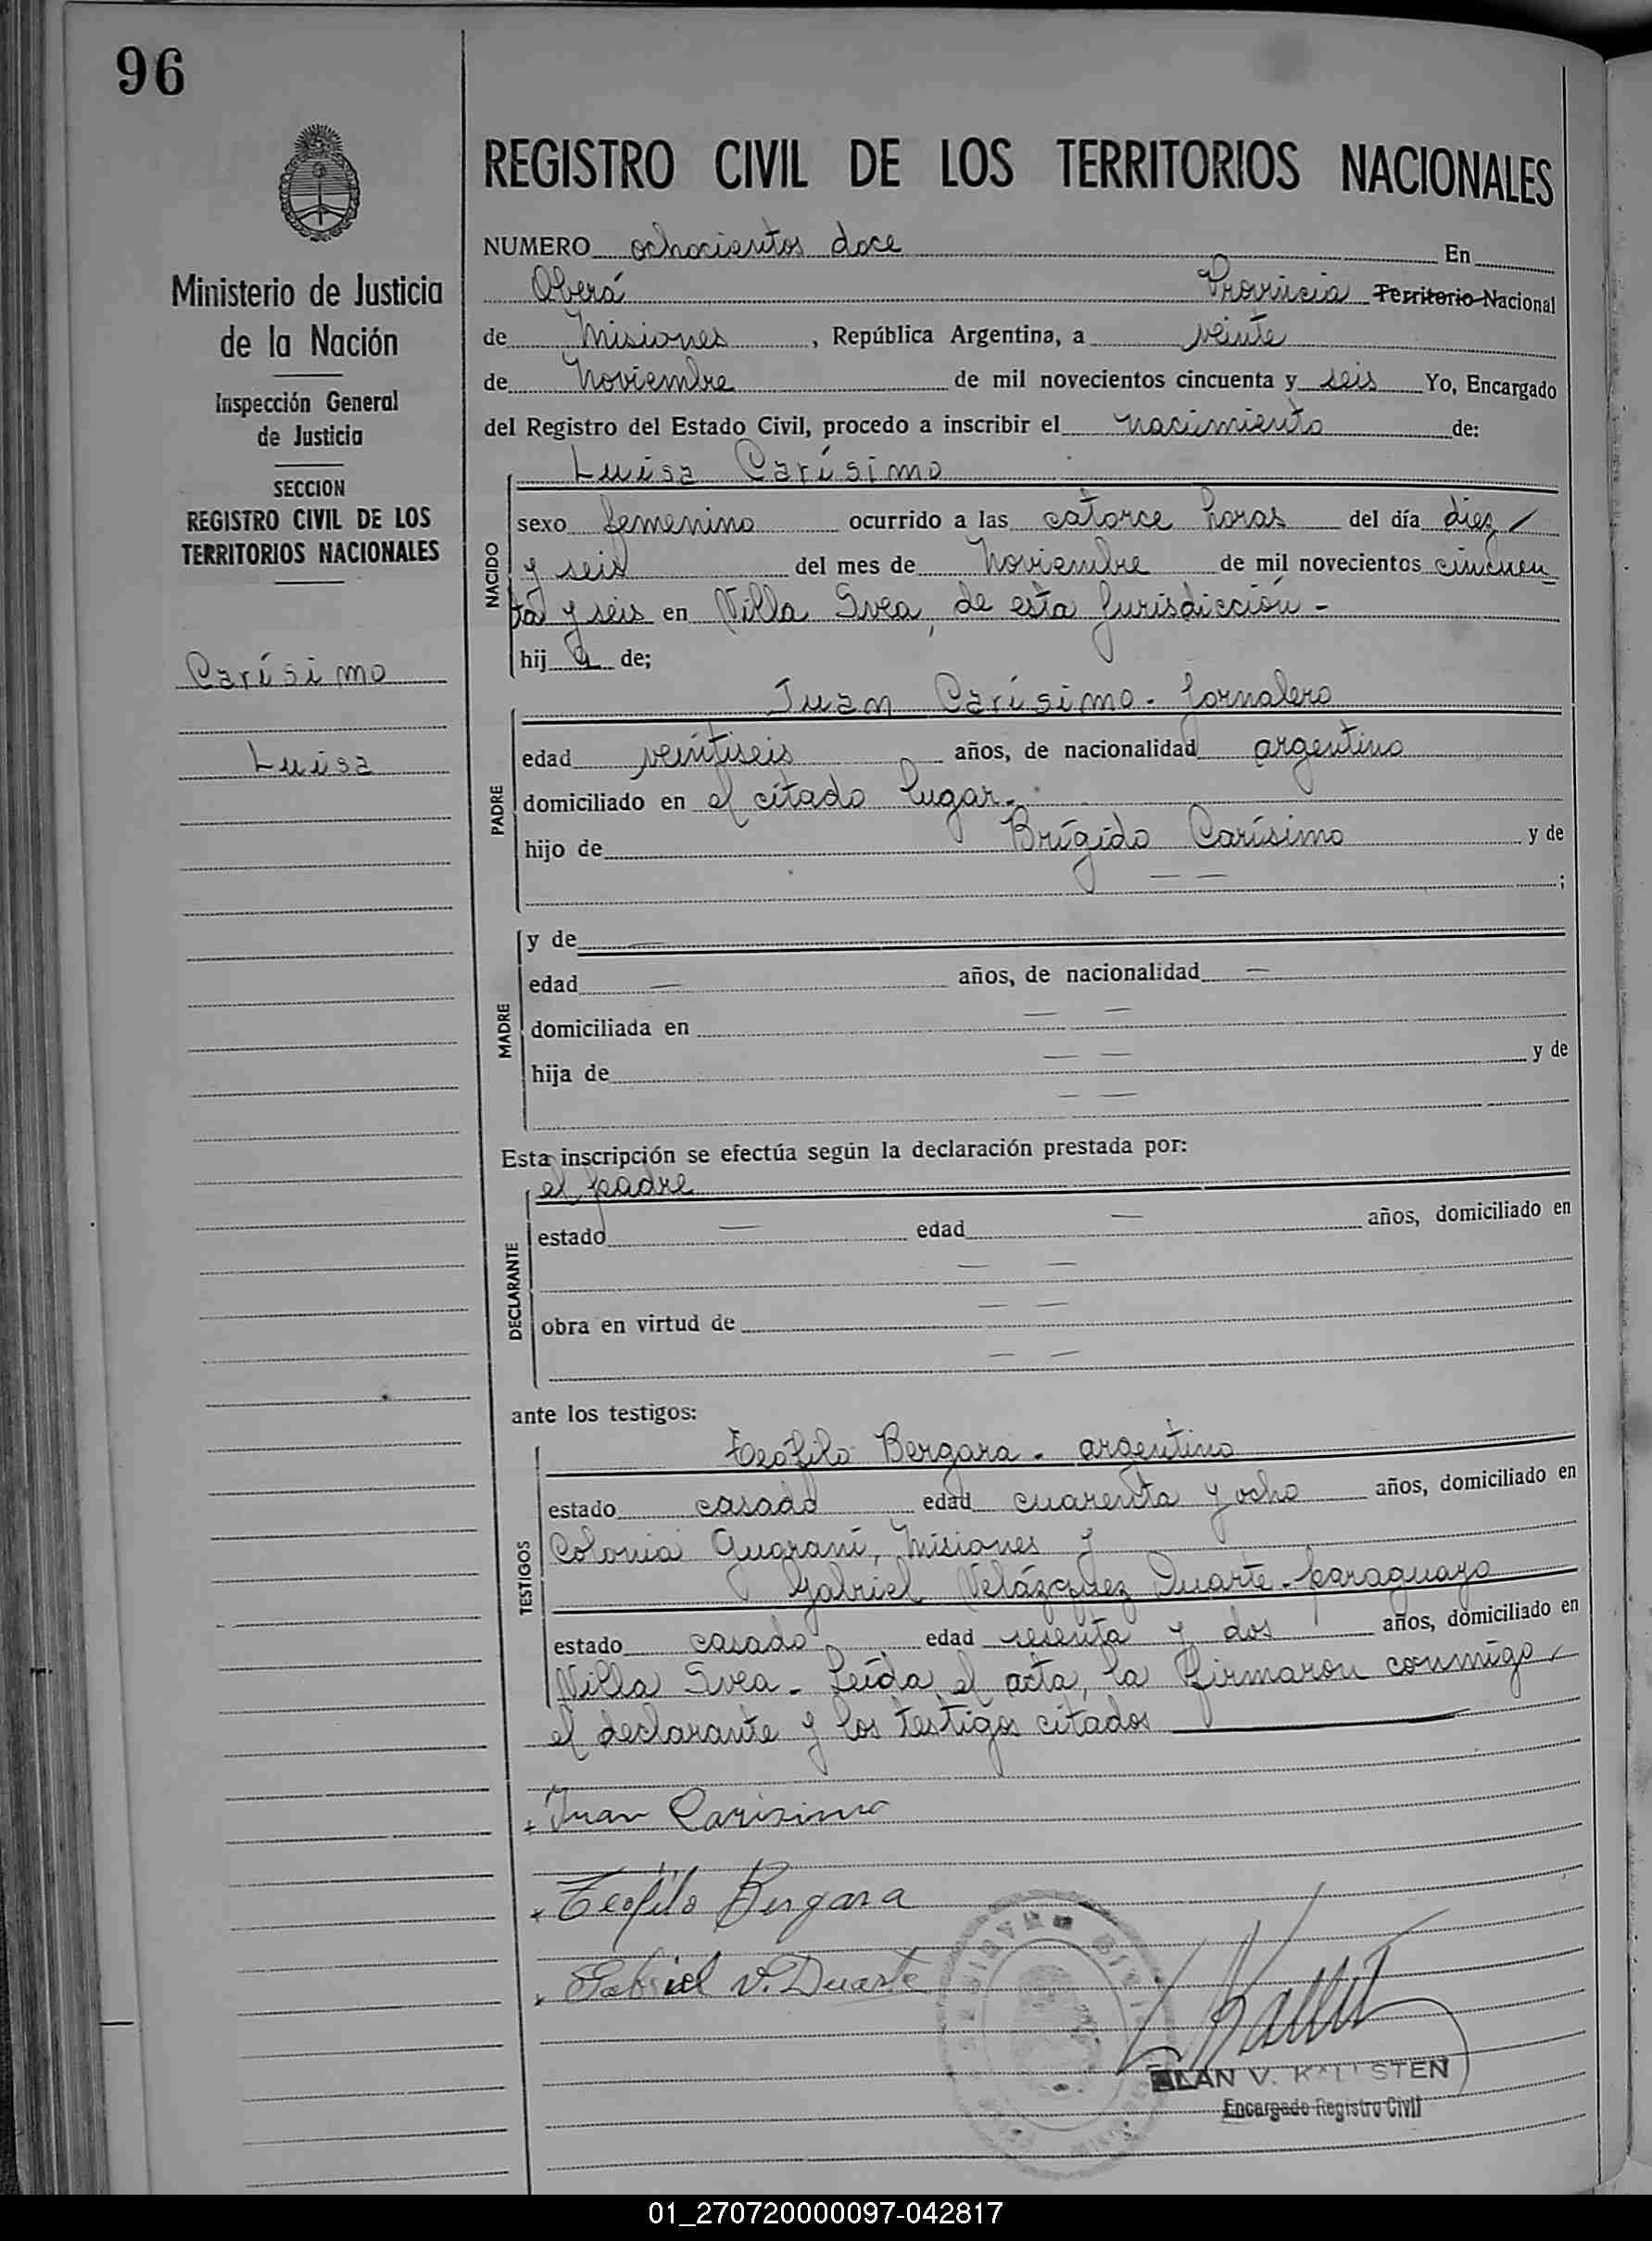 96
REGISTRO CIVIL DE LOS TERRITORIOS NACIONALES
Ministerio de Justicia
de la Nación
Inspección General
de Justicia
SECCION
REGISTRO CIVIL DE LOS
TERRITORIOS NACIONALES
Carísimo
Luisa
NUMERO ochocientos doce En
Oberá Provincia Territorio Nacional
de Misiones, República Argentina, a veinte
de Noviembre de mil novecientos cincuenta y seis Yo, Encargado
del Registro del Estado Civil, procedo a inscribir el nacimiento de:
Luisa Carísimo
NACIDO
sexo femenino ocurrido a las catorce horas del día diez
y seis del mes de Noviembre de mil novecientos cincuen
ta y seis en Villa Svea, de esta Jurisdicción -
hij a de;
Juan Carísimo - Jornalero
PADRE
edad veintiseis años, de nacionalidad argentino
domiciliado en el citado lugar.
hijo de Brígido Carísimo y de
— — ;
MADRE
y de —
edad — años, de nacionalidad —
domiciliada en — —
hija de — — y de
— —
Esta inscripción se efectúa según la declaración prestada por:
el padre
DECLARANTE
estado — edad — años, domiciliado en
— —
obra en virtud de — —
— —
ante los testigos:
Teófilo Bergara - argentino
TESTIGOS
estado casado edad cuarenta y ocho años, domiciliado en
Colonia Guaraní, Misiones y
Gabriel Velázquez Duarte - paraguayo
estado casado edad sesenta y dos años, domiciliado en
Villa Svea - Leída el acta, la firmaron conmigo
el declarante y los testigos citados
Juan Carisimo
Teofilo Bergara
Gabriel V. Duarte
ELAN V. KALLSTEN
Encargado Registro Civil
01_270720000097-042817